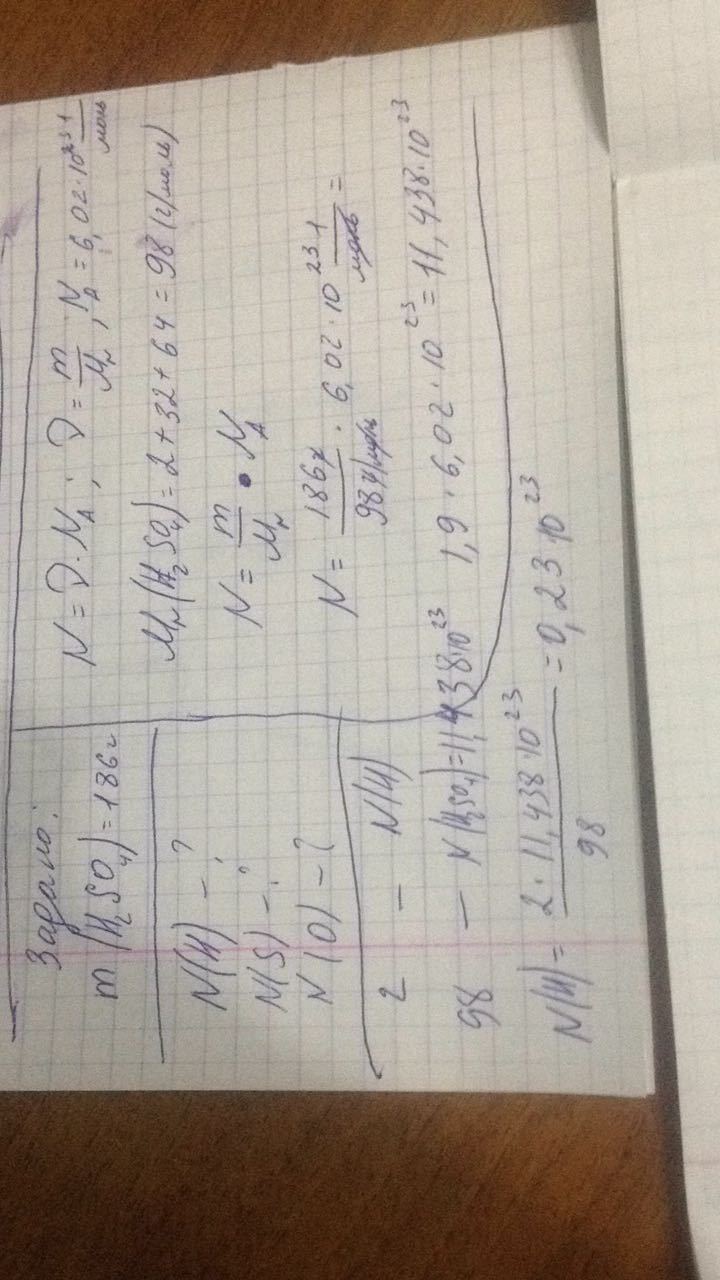 Задано:
m (H₂SO₄) = 186г
N(H) - ?
N(S) - ?
N(O) - ?
N = ν · N_A ; ν = m/Mr , N_A = 6,02 · 10²³ 1/моль
Mr(H₂SO₄) = 2 + 32 + 64 = 98 (г/моль)
N = m/Mr · N_A
N = 186г/98г/моль · 6,02 · 10²³ 1/моль =
1,9 · 6,02 · 10²³ = 11,438 · 10²³
2 - N(H)
98 - N(H₂SO₄) = 11,438·10²³
N(H) = 2 · 11,438 · 10²³/98 = 0,23 · 10²³